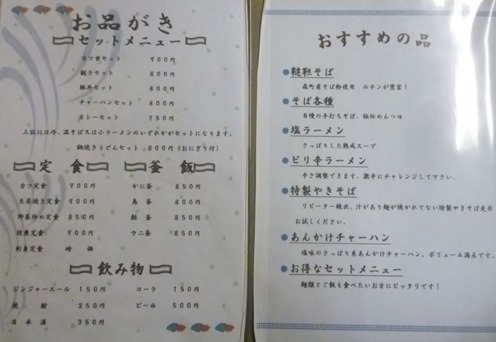 お品がき
セットメニュー
カツ重セット 900円
親子セット 800円
豚丼セット 800円
チャーハンセット 800円
カレーセット 750円
上記には冷、温そば又は小ラーメンのいずれかがセットになります。
鍋焼きうどんセット 800円(おにぎり付)
定食
カツ定食 900円
生姜焼き定食 900円
野菜炒め定食 850円
焼魚定食 900円
刺身定食 時価
釜飯
かに釜 850円
鳥釜 800円
鮭釜 850円
ウニ釜 850円
飲み物
ジンジャーエール 150円
コーラ 150円
焼酎 250円
ビール 500円
日本酒 350円
おすすめの品
韃靼そば
森町産そば粉使用 ルチンが豊富!
そば各種
自慢の手打ちそば、
塩ラーメン
さっぱりした熟成スープ
ピリ辛ラーメン
辛さ調整できます、激辛にチャレンジして下さい。
特製やきそば
リピーター続出、汁があり麺が焼かれてない特製やきそば是非
お試しください。
あんかけチャーハン
塩味のさっぱり系あんかけチャーハン、ボリューム満点です。
お得なセットメニュー
麺類とご飯も食べたいお方にピッタリです!